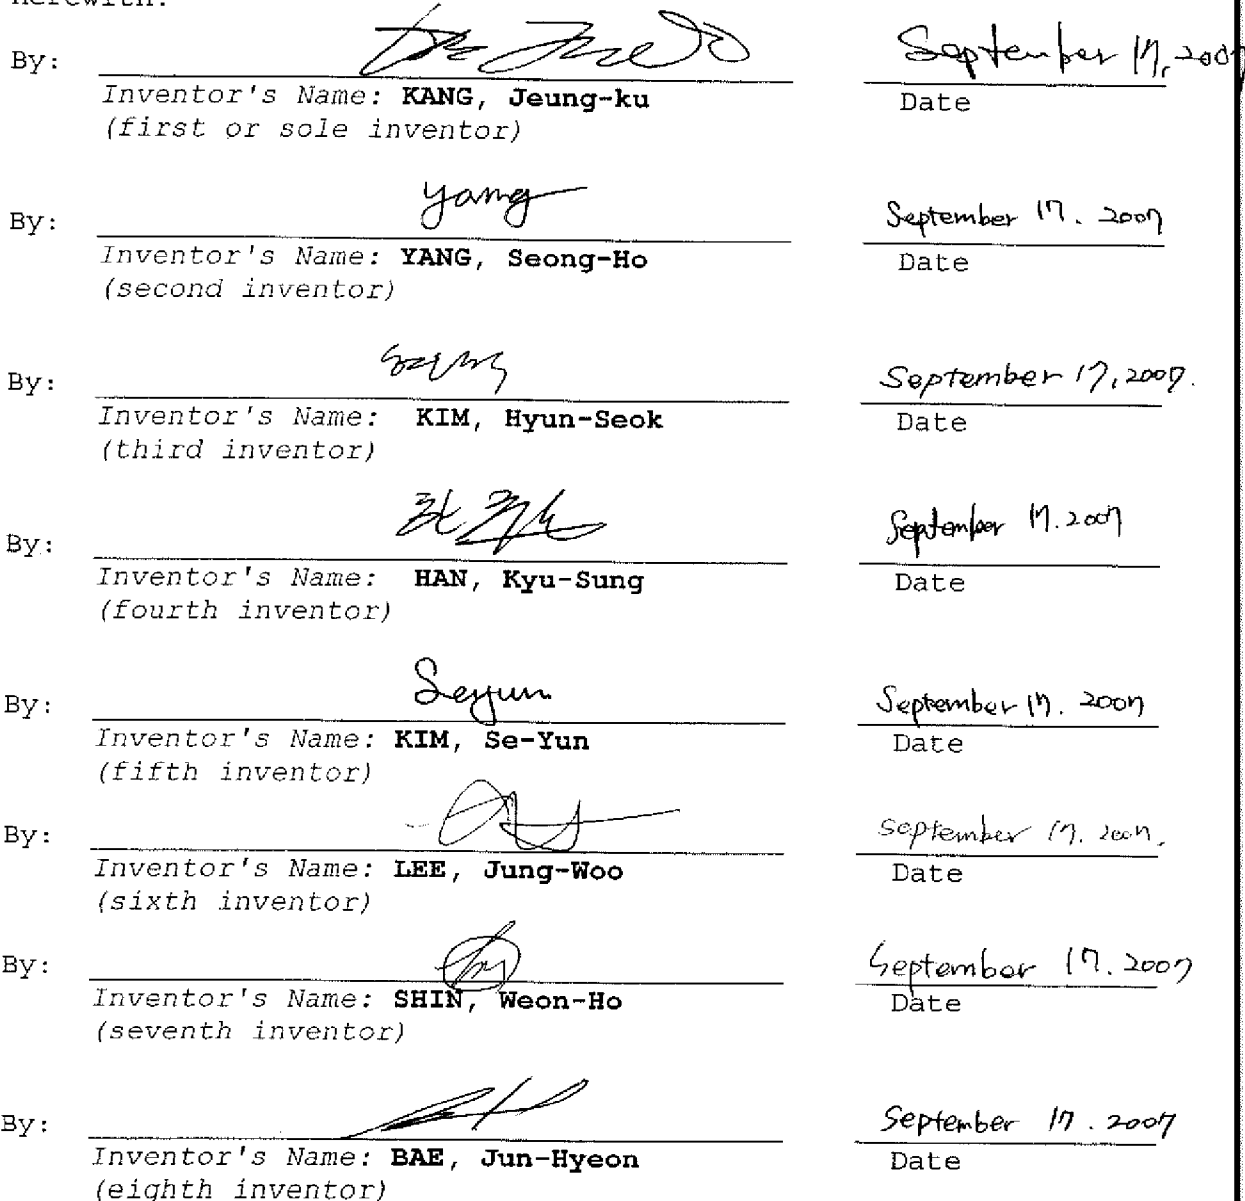 herewith.
By:
September 17, 2007
Inventor's Name: KANG, Jeung-ku
Date
(first or sole inventor)
By: Yang
September 17. 2007
Inventor's Name: YANG, Seong-Ho
Date
(second inventor)
By:
September 17, 2007.
Inventor's Name: KIM, Hyun-Seok
Date
(third inventor)
By: 한규성
September 17. 2007
Inventor's Name: HAN, Kyu-Sung
Date
(fourth inventor)
By: Seyun
September 17. 2007
Inventor's Name: KIM, Se-Yun
Date
(fifth inventor)
By:
September 17. 2007.
Inventor's Name: LEE, Jung-Woo
Date
(sixth inventor)
By:
September 17. 2007
Inventor's Name: SHIN, Weon-Ho
Date
(seventh inventor)
By:
September 17. 2007
Inventor's Name: BAE, Jun-Hyeon
Date
(eighth inventor)